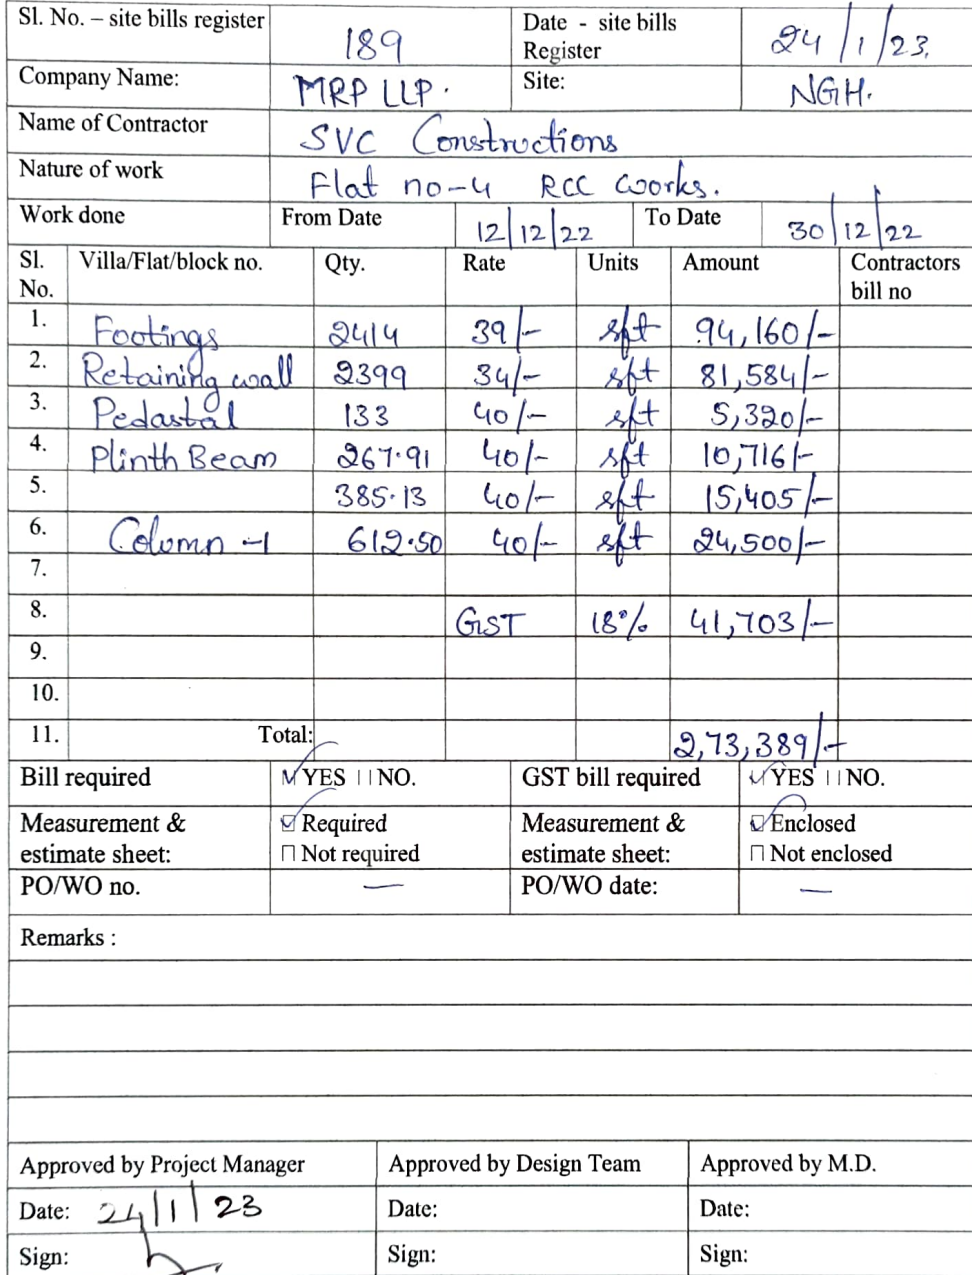 Sl. No. – site bills register 189 Date - site bills Register 24/1/23.
Company Name: MRP LLP. Site: NGH.
Name of Contractor SVC Constructions
Nature of work Flat no-4 RCC works.
Work done From Date 12/12/22 To Date 30/12/22
Sl. No. Villa/Flat/block no. Qty. Rate Units Amount Contractors bill no
1. Footings 2414 39/- sft 94,160/-
2. Retaining wall 2399 34/- sft 81,584/-
3. Pedastal 133 40/- sft 5,320/-
4. Plinth Beam 267.91 40/- sft 10,716/-
5. 385.13 40/- sft 15,405/-
6. Column -1 612.50 40/- sft 24,500/-
7.
8. GST 18% 41,703/-
9.
10.
11. Total: 2,73,389/-
Bill required ☑ YES □ NO. GST bill required ☑ YES □ NO.
Measurement & estimate sheet: ☑ Required Measurement & estimate sheet: ☑ Enclosed
□ Not required □ Not enclosed
PO/WO no. — PO/WO date: —
Remarks :
Approved by Project Manager Approved by Design Team Approved by M.D.
Date: 24/1/23 Date: Date:
Sign: Sign: Sign: